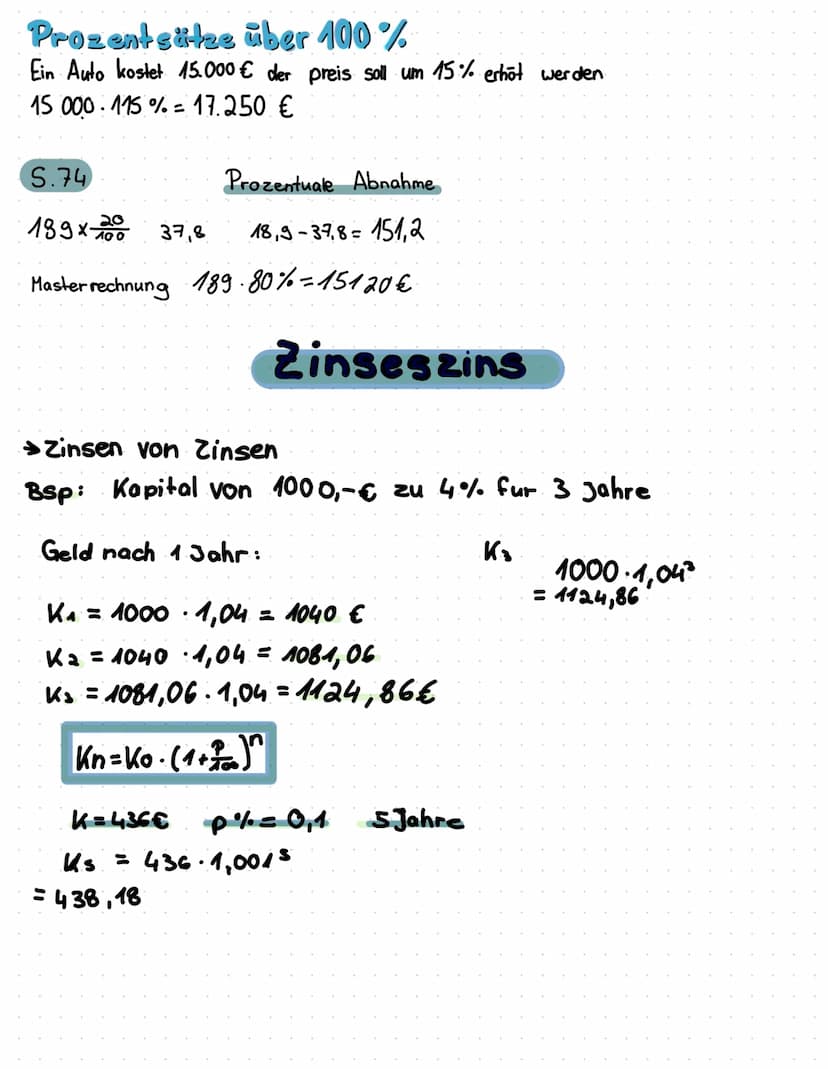 Prozentsätze über 100 %
Ein Auto kostet 15.000 € der preis soll um 15% erhöt werden
15 000 · 115 % = 17.250 €
S.74
Prozentuale Abnahme
189 x 20/100 37,8 18,9 - 37,8 = 151,2
Masterrechnung 189 · 80% = 15120 €
Zinseszins
→ Zinsen von Zinsen
Bsp: Kapital von 1000,-€ zu 4% fur 3 Jahre
Geld nach 1 Jahr:
K₁ = 1000 · 1,04 = 1040 €
K₂ = 1040 · 1,04 = 1081,06
K₃ = 1081,06 · 1,04 = 1124,86€
K₃ 1000 · 1,04³
= 1124,86
Kn = Ko · (1 + p/100)ⁿ
K = 436€ p% = 0,1 5 Jahre
K₅ = 436 · 1,001⁵
= 438,18